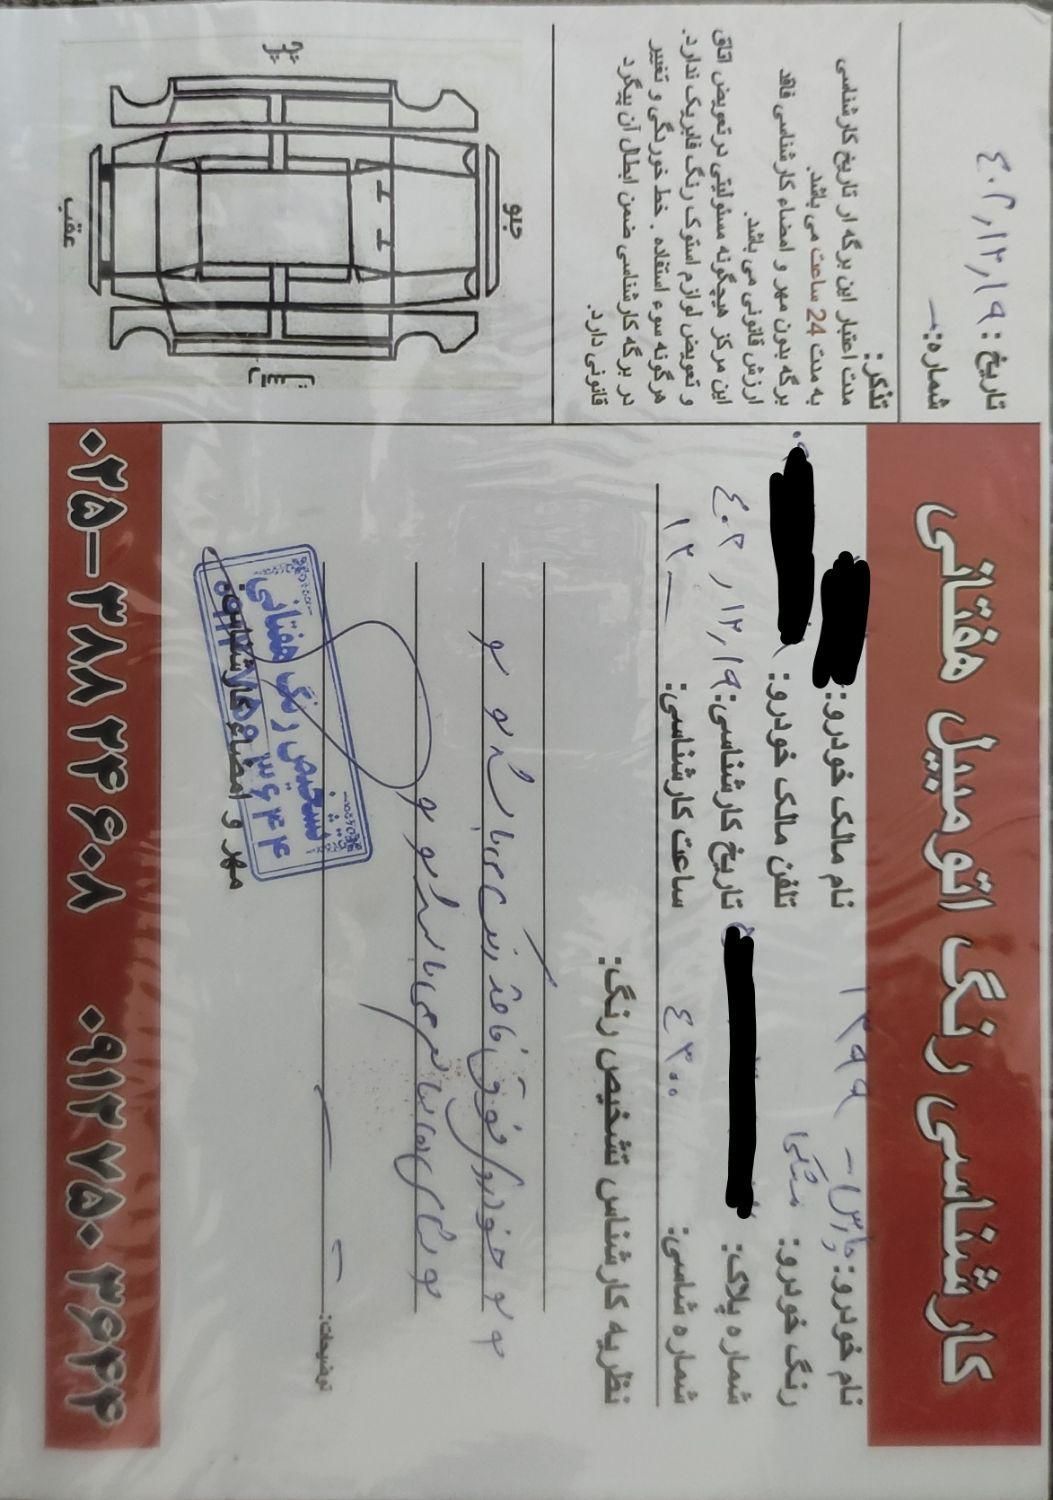 کارشناسی رنگ اتومبیل هفتانی
تاریخ: ۴۰۲٫۱۲٫۱۹
شماره:
تذکر:
مدت اعتبار این برگه از تاریخ کارشناسی
به مدت 24 ساعت می باشد.
برگه بدون مهر و امضاء کارشناسی فاقد
ارزش قانونی می باشد.
این مرکز هیچگونه مسئولیتی در تعویض اتاق
و تعویض لوازم استوک رنگ فابریک ندارد.
هرگونه سوء استفاده . خط خوردگی و تغییر
در برگه کارشناسی ضمن ابطال آن پیگرد
قانونی دارد.
جلو
عقب
چپ
راست
نام خودرو: پارس ۱۳۹۹
نام مالک خودرو:
رنگ خودرو: مشکی
تلفن مالک خودرو:
شماره پلاک:
تاریخ کارشناسی: ۴۰۲٫۱۲٫۱۹
شماره شاسی: ۴۳۰۰
ساعت کارشناسی: ۱۲
نظریه کارشناس تشخیص رنگ:
خودرو فوق فاقد رنگ می باشد
می باشد
توضیحات:
مهر و امضاء کارشناس:
تشخیص رنگ هفتانی
۰۹۱۲۷۵۰۳۶۴۴
۰۲۵-۳۸۸۲۴۶۰۸
۰۹۱۲ ۷۵۰ ۳۶۴۴